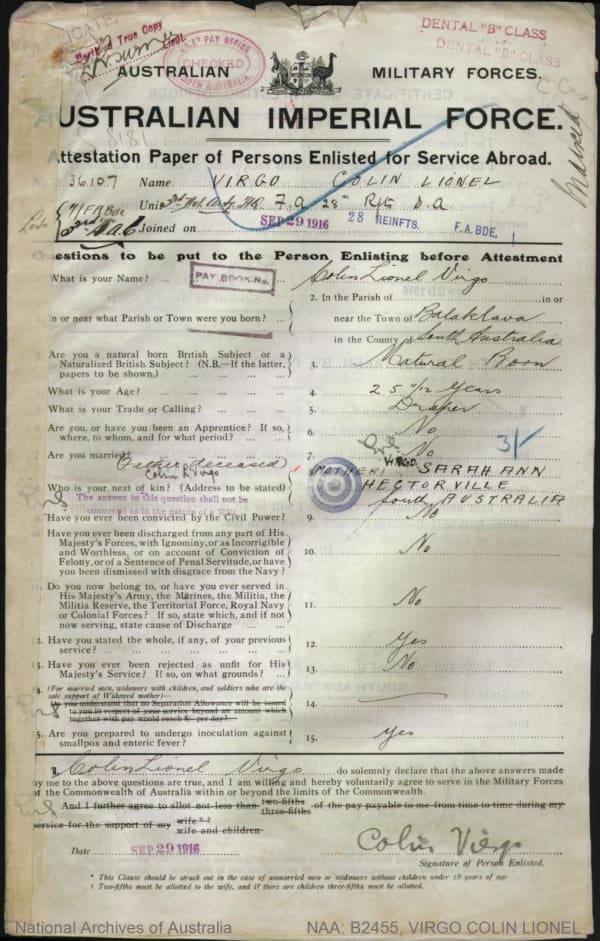 Certified True Copy
PAY OFFICE
CHECKED
SOUTH AUSTRALIA
DENTAL "B" CLASS
DENTAL "B" CLASS
AUSTRALIAN MILITARY FORCES.
USTRALIAN IMPERIAL FORCE.
Attestation Paper of Persons Enlisted for Service Abroad.
36107 Name VIRGO COLIN LIONEL
Unit F.A. 28th Rfts
Joined on SEP 29 1916 28 REINFTS. F.A. BDE.
estions to be put to the Person Enlisting before Attestment
What is your Name? ... PAY BOOK No. Colin Lionel Virgo
2. In the Parish of in or
In or near what Parish or Town were you born? ... near the Town of Balaklava
in the County of South Australia
Are you a natural born British Subject or a
Naturalized British Subject? (N.B.—If the latter, 3. Natural Born
papers to be shown.)
What is your Age? ... 4. 25 7/12 Years
What is your Trade or Calling? ... 5. Draper
Are you, or have you been an Apprentice? If so, 6. No
where, to whom, and for what period? ...
Are you married? 7. No 3/-
(Father deceased) (MOTHER) VIRGO SARAH ANN
Colin Virgo
Who is your next of kin? (Address to be stated) HECTORVILLE
The answer to this question shall not be South AUSTRALIA
construed as in the nature of a Will
Have you ever been convicted by the Civil Power? 9. No
Have you ever been discharged from any part of His
Majesty's Forces, with Ignominy, or as Incorrigible
and Worthless, or on account of Conviction of 10. No
Felony, or of a Sentence of Penal Servitude, or have
you been dismissed with disgrace from the Navy?
Do you now belong to, or have you ever served in
His Majesty's Army, the Marines, the Militia, the
Militia Reserve, the Territorial Force, Royal Navy 11. No
or Colonial Forces? If so, state which, and if not
now serving, state cause of Discharge ...
2. Have you stated the whole, if any, of your previous 12. Yes
service? ...
3. Have you ever been rejected as unfit for His 13. No
Majesty's Service? If so, on what grounds? ...
4. (For married men, widowers with children, and soldiers who are the
sole support of Widowed mother)—
Do you understand that no Separation Allowance will be issued 14.
to you in respect of your service beyond an amount which
together with pay would reach 8/- per day? ...
5. Are you prepared to undergo inoculation against 15. Yes
smallpox and enteric fever?
I, Colin Lionel Virgo do solemnly declare that the above answers made
by me to the above questions are true, and I am willing and hereby voluntarily agree to serve in the Military Forces
of the Commonwealth of Australia within or beyond the limits of the Commonwealth.
And I further agree to allot not less than two-fifths three-fifths of the pay payable to me from time to time during my
service for the support of my wife * †
wife and children
Date SEP 29 1916 Colin Virgo
Signature of Person Enlisted.
* This Clause should be struck out in the case of unmarried men or widowers without children under 18 years of age
† Two-fifths must be allotted to the wife, and if there are children three-fifths must be allotted.
National Archives of Australia NAA: B2455, VIRGO COLIN LIONEL